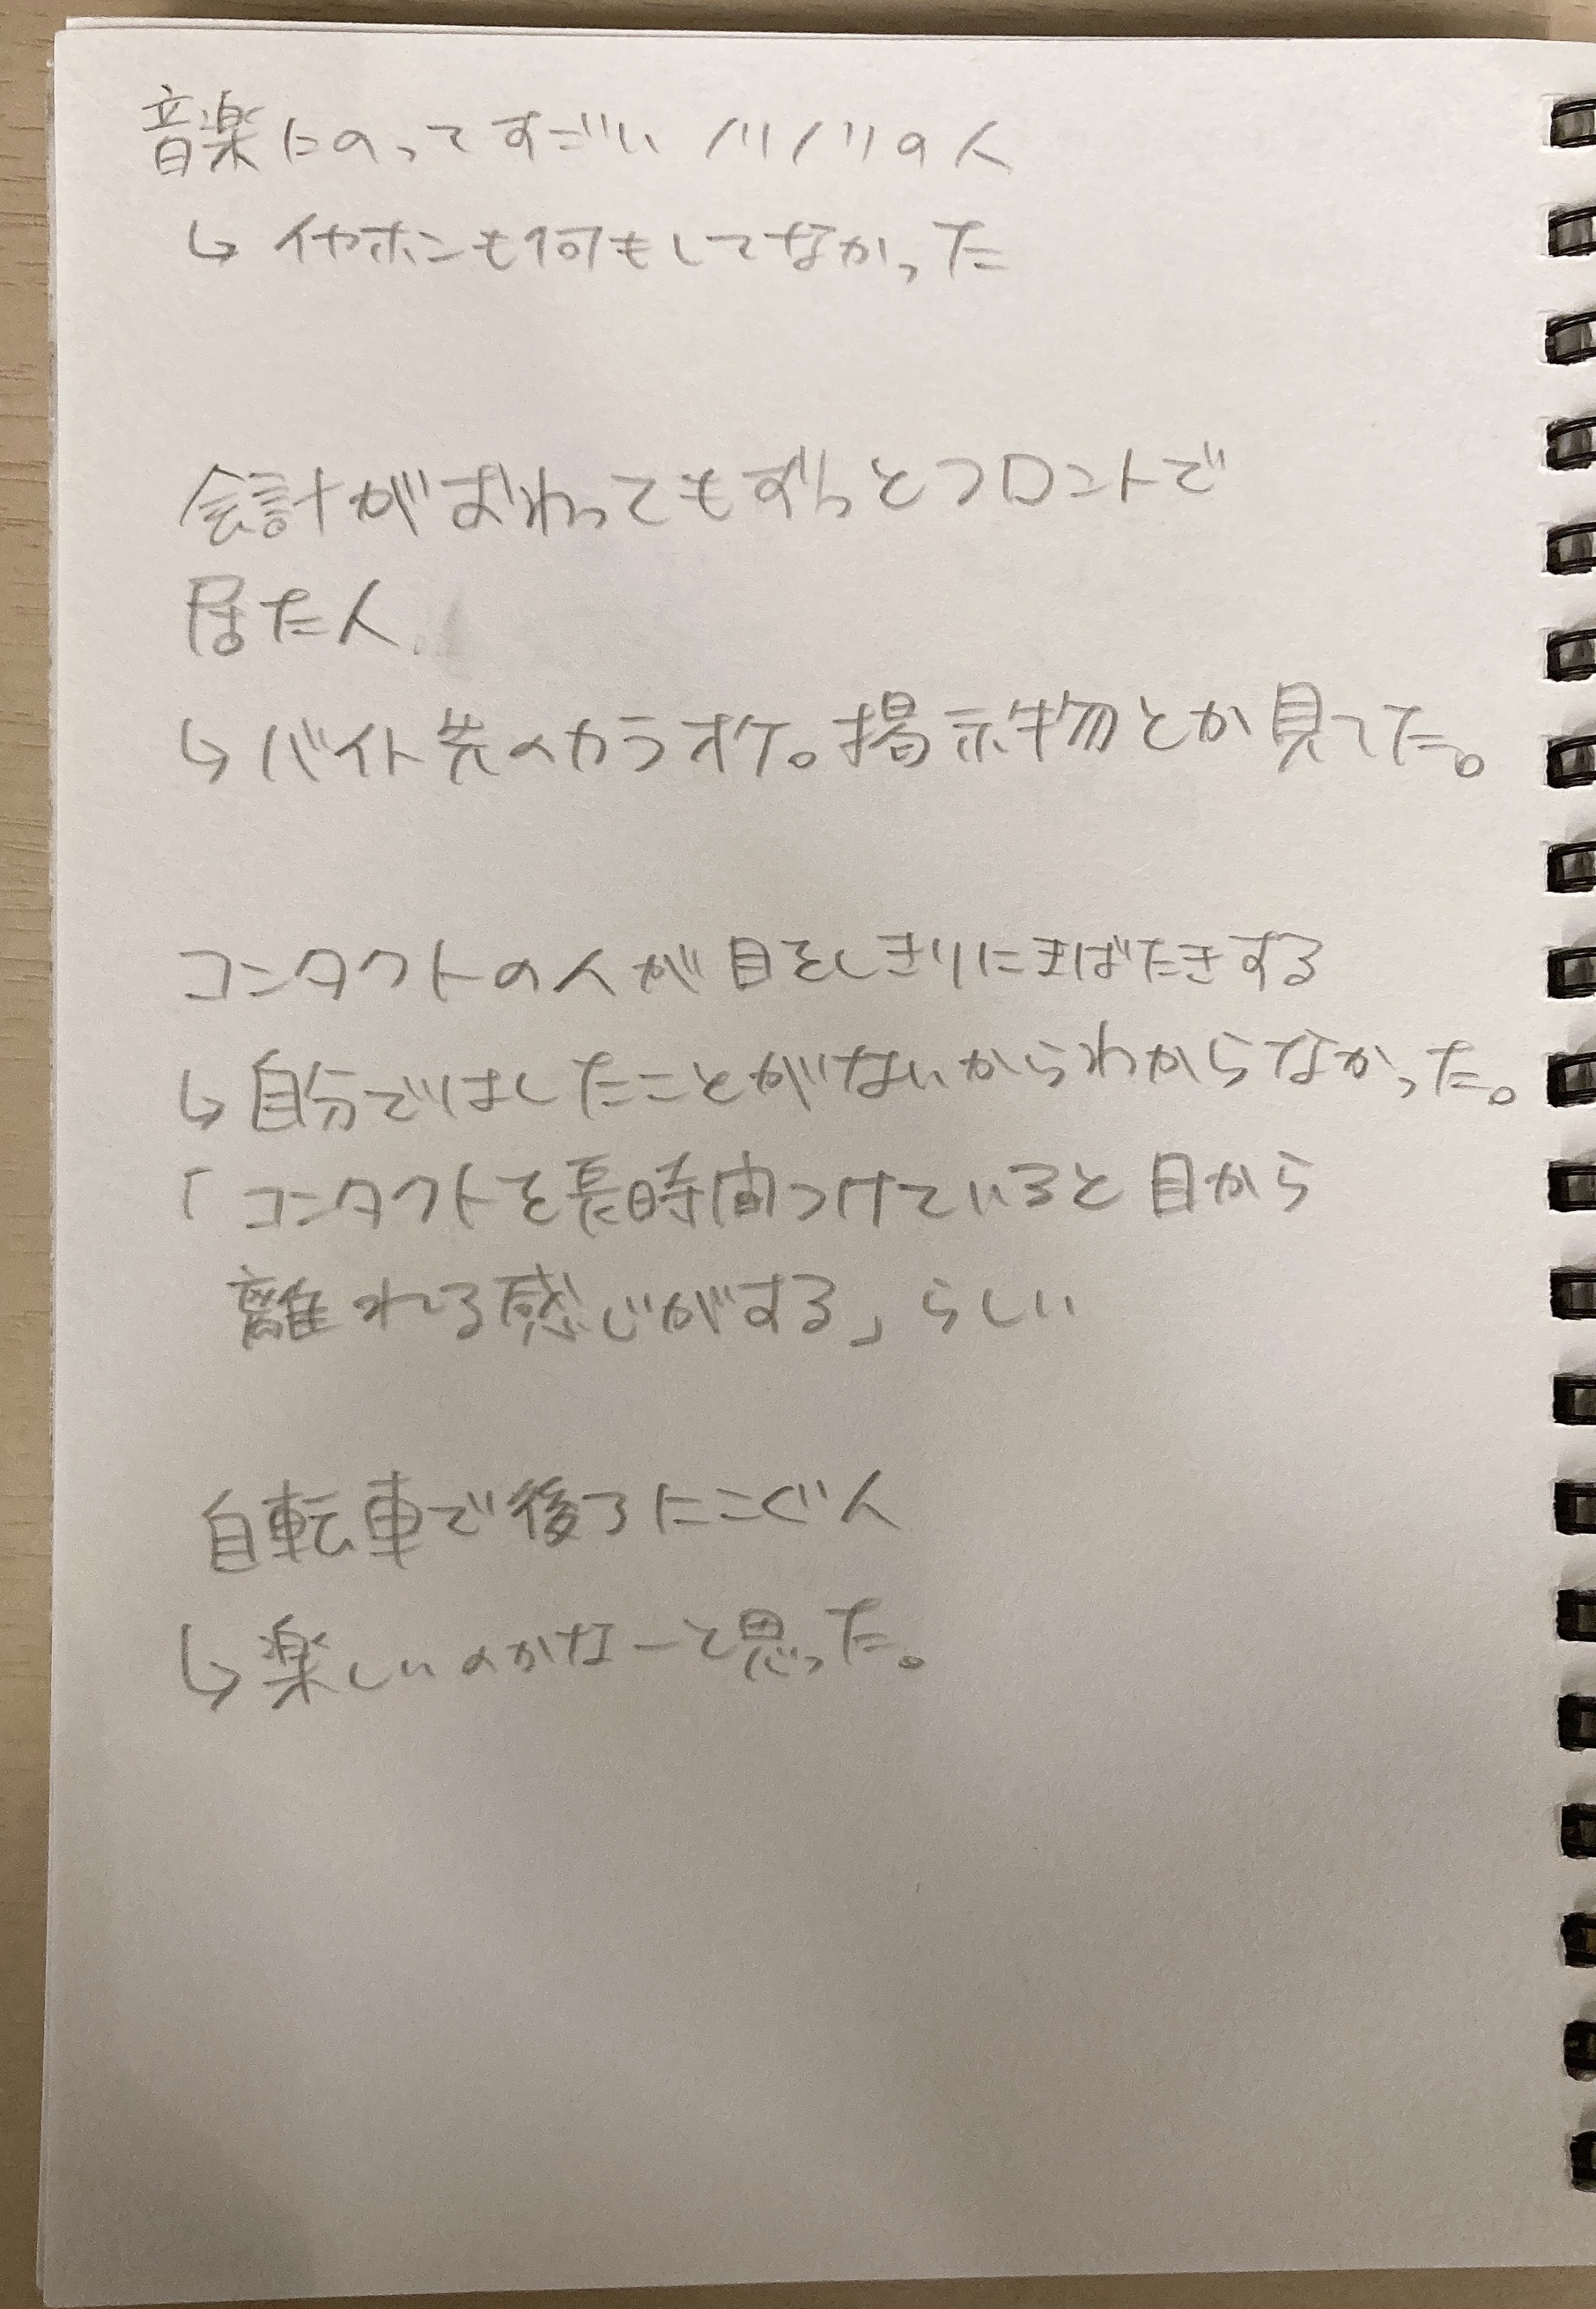 音楽にのってすごいノリノリの人
↳ イヤホンも何もしてなかった
会計がおわってもずっとフロントで
居た人
↳ バイト先のカラオケ。掲示物とか見てた。
コンタクトの人が目をしきりにまばたきする
↳ 自分ではしたことがないからわからなかった。
「コンタクトを長時間つけていると目から
離れる感じがする」らしい
自転車で後ろにこぐ人
↳ 楽しいのかなーと思った。